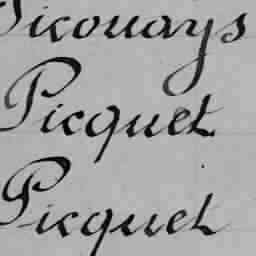 Picouays
Picquet
Picquet